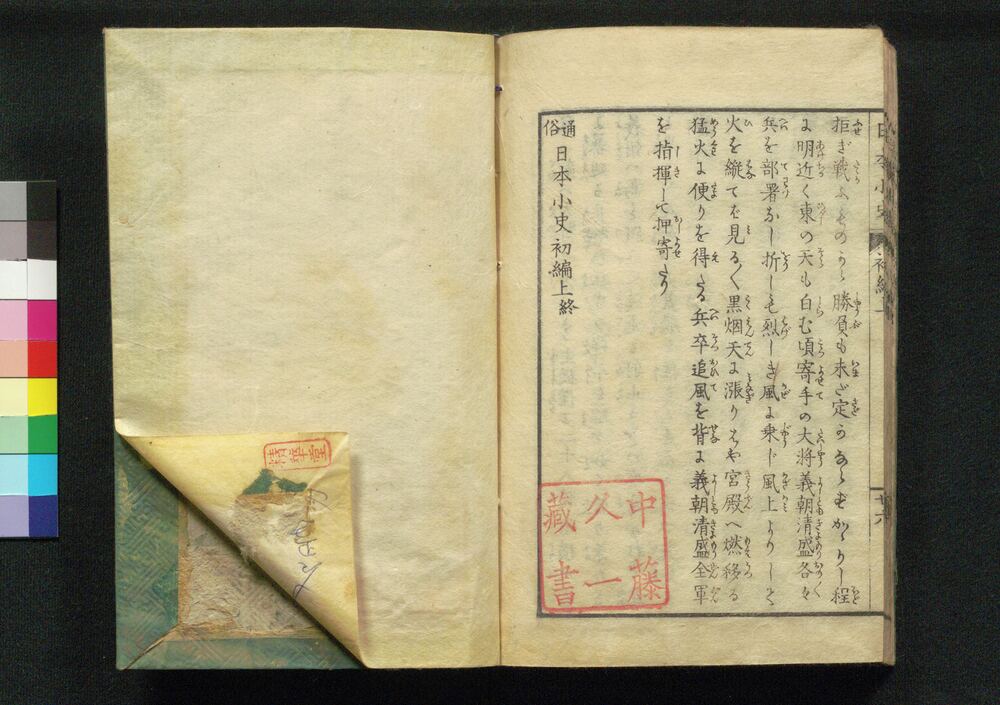 日本小史 初編上
廿六
拒ぎ戦ふものから勝負も未だ定かならずかゝりし程
に明近く東の天も白む頃寄手の大将義朝清盛各々
兵を部署なし折しも烈しき風に乗じ風上よりして
火を縦てば見る〱黒烟天に漲りはや宮殿へ燃移る
猛火に便りを得たる兵卒追風を背に義朝清盛全軍
を指揮して押寄たり
通俗日本小史初編上終
中藤
久一
藏書